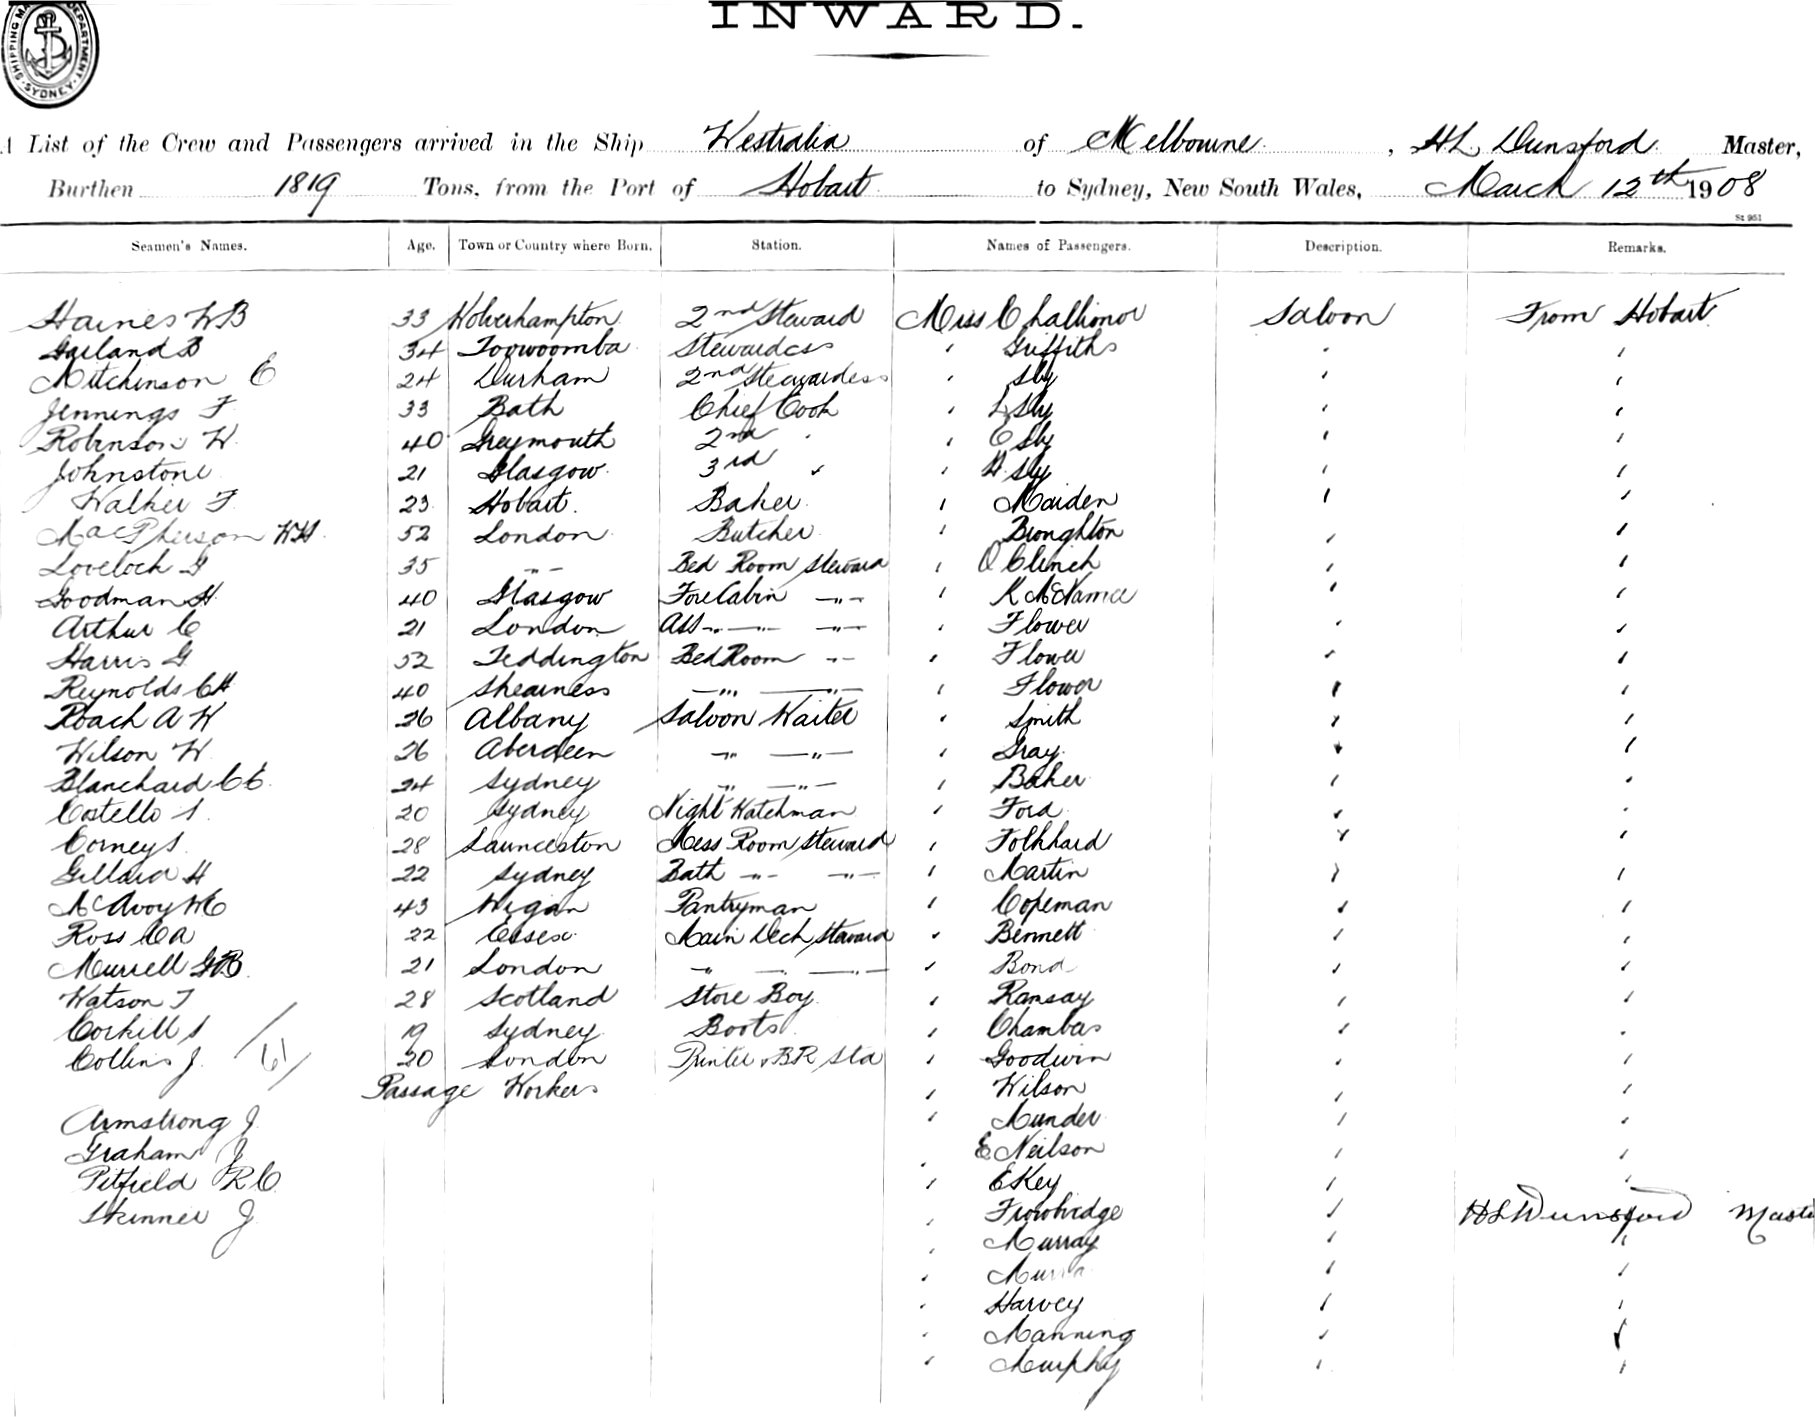 INWARD.
SHIPPING MA DEPARTMENT SYDNEY
A List of the Crew and Passengers arrived in the Ship Westralia of Melbourne, HL Dunsford Master,
Burthen 1819 Tons, from the Port of Hobart to Sydney, New South Wales, March 12th 1908
St 951
Seamen's Names. Age. Town or Country where Born. Station. Names of Passengers. Description. Remarks.
Haines WB 33 Wolverhampton 2nd Steward Miss Challionor Saloon From Hobart
Garland B 34 Toowoomba Stewardess " Griffiths " "
Mitchinson C 24 Durham 2nd Stewardess " Sly " "
Jennings F 33 Bath Chief Cook " L Sly " "
Robinson W 40 Greymouth 2nd " " C Sly " "
Johnstone 21 Glasgow 3rd " " H Sly " "
Walker F 23 Hobart Baker " Maiden " "
MacPherson WH 52 London Butcher " Broughton " "
Lovelock G 35 " Bed Room Steward " O Clinch " "
Goodman H 40 Glasgow Fore Cabin " " K McNamee " "
Arthur C 21 London Ass " " " Flower " "
Harris G 52 Teddington Bed Room " " Flower " "
Reynolds CH 40 Shearness " " " Flower " "
Roach A W 26 Albany Saloon Waiter " Smith " "
Wilson W 26 Aberdeen " " " Gray " "
Blanchard CC 24 Sydney " " " Baker " "
Costello S 20 Sydney Night Watchman " Ford " "
Corney S 28 Launceston Mess Room Steward " Folkhard " "
Gillard H 22 Sydney Bath " " " Martin " "
McAvoy WC 43 Wigan Pantryman " Copeman " "
Ross CA 22 Essex Main Deck Steward " Bennett " "
Murrell GB 21 London " " " " Bond " "
Watson T 28 Scotland Store Boy " Ramsay " "
Corkill S 19 Sydney Boots " Chambers " "
Collins J /61/ 20 London Printer & BR Std " Goodwin " "
Passage Workers " Wilson " "
Armstrong J " Munder " "
Graham J " E Neilson " "
Pitfield RC " E Key " "
Skinner J " Trowbridge " HL Dunsford Maste
" Murray " "
" "  "
" Harvey " "
" Manning " "
" Murphy " "